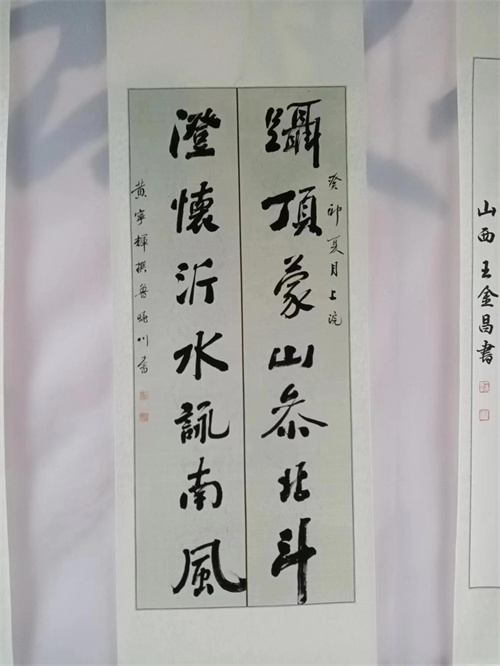 山西王金昌書
躡頂蒙山叅北斗
癸卯夏月上浣
澄懷沂水詠南風
黄寧輝撰魯曉川書